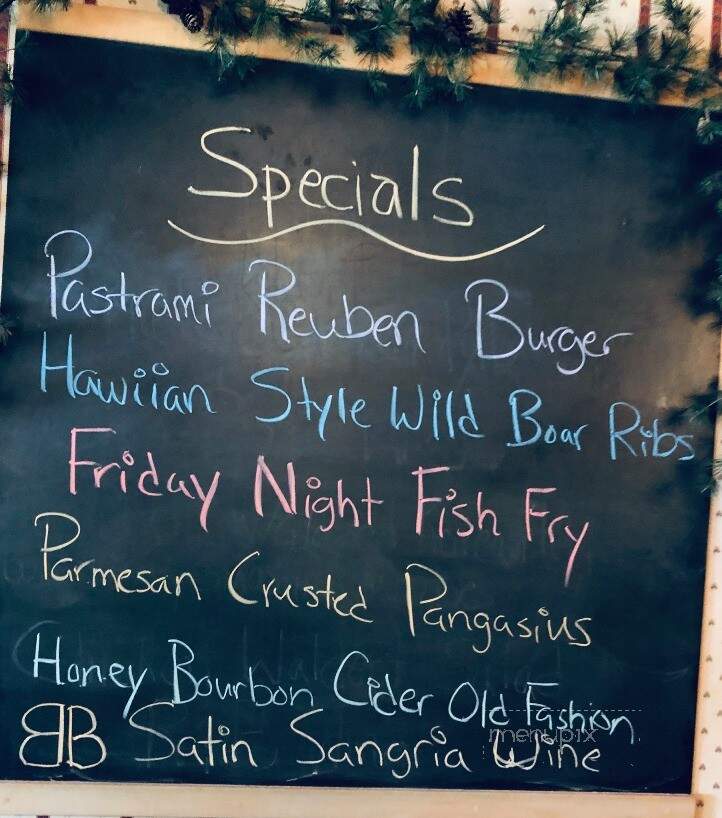 Specials
Pastrami Reuben Burger
Hawiian Style Wild Boar Ribs
Friday Night Fish Fry
Parmesan Crusted Pangasius
Honey Bourbon Cider Old Fashion
BB Satin Sangria Wine
menupix